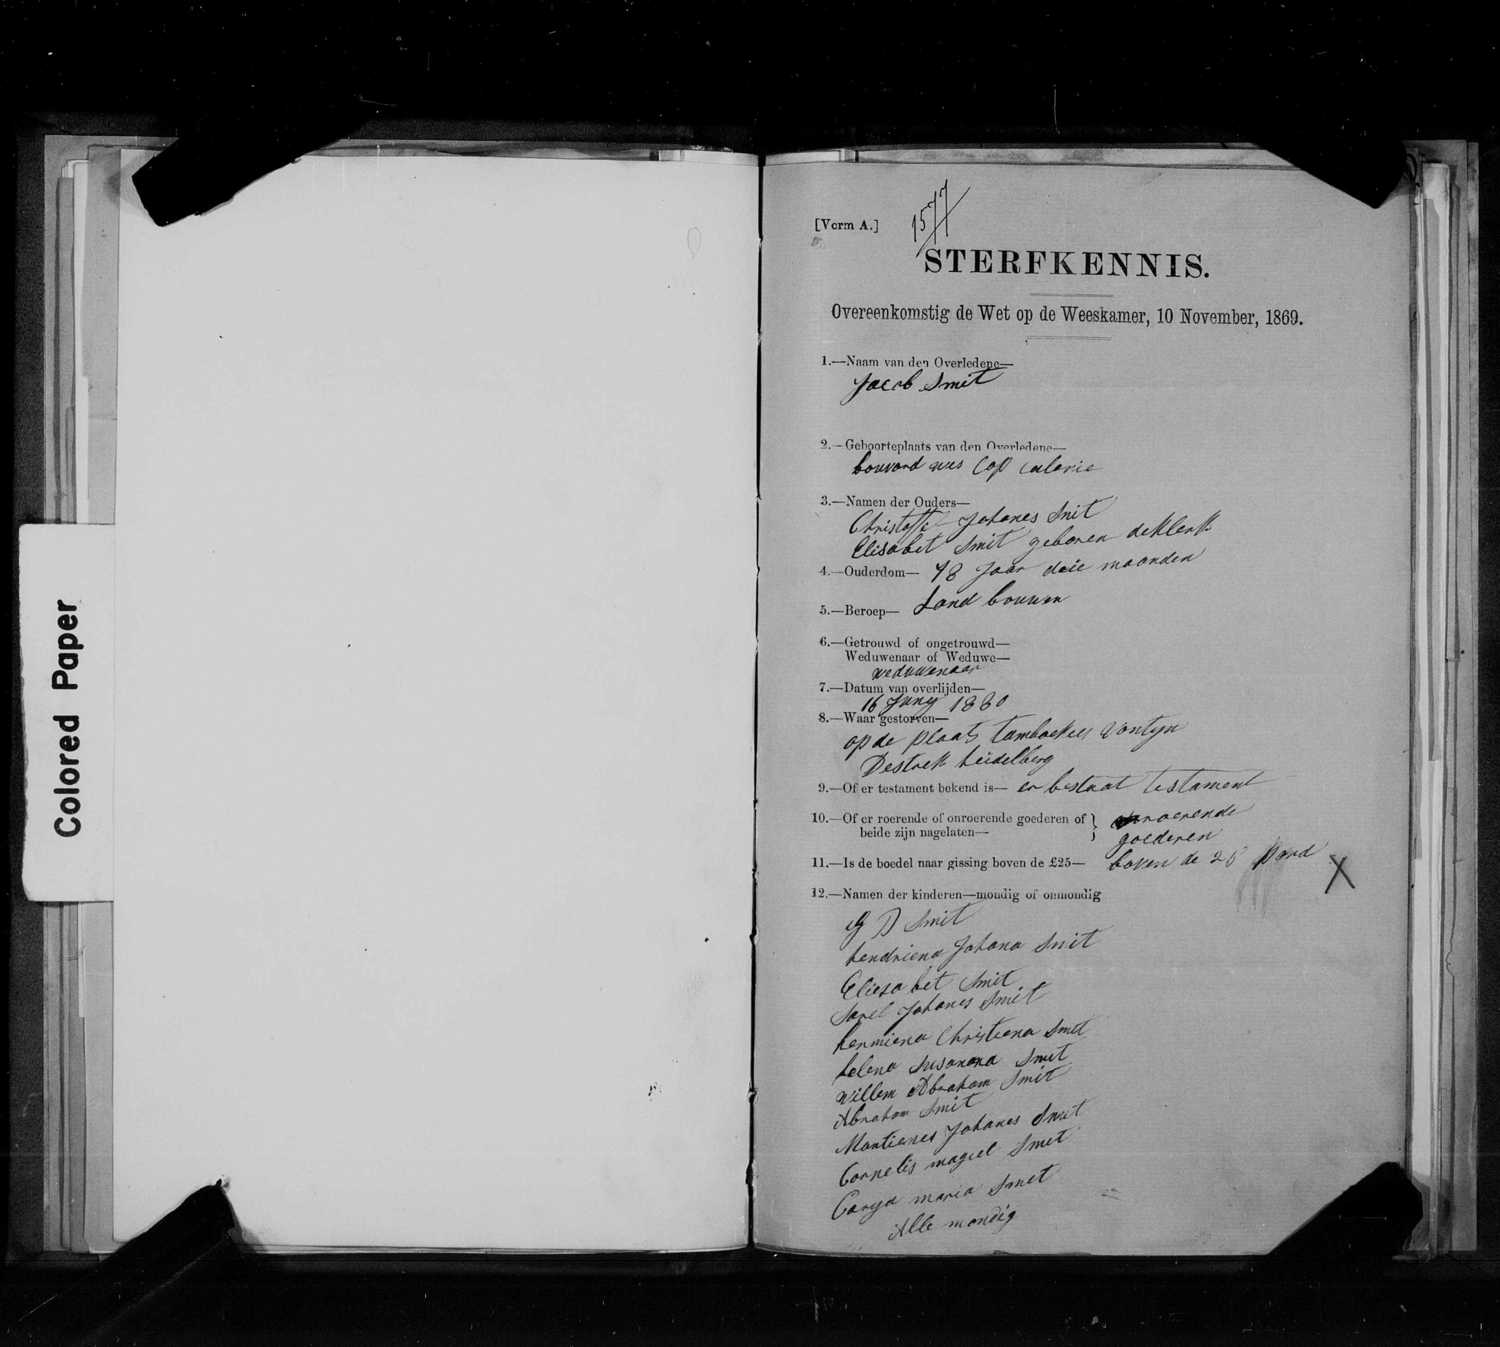 Colored Paper
[Vorm A.]
1577
STERFKENNIS.
Overeenkomstig de Wet op de Weeskamer, 10 November, 1869.
1.—Naam van den Overledene—
Jacob Smit
2.—Geboorteplaats van den Overledene—
bouvord wes Cap Colonie
3.—Namen der Ouders—
Christoffel Johanes Smit
Elisabet Smit geboren deKlerk
4.—Ouderdom— 78 Jaar drie maanden
5.—Beroep— Land bouwer
6.—Getrouwd of ongetrouwd—
Weduwenaar of Weduwe—
weduwenaar
7.—Datum van overlijden—
16 Juny 1880
8.—Waar gestorven—
op de plaats tamboekies vontyn
Destrek heidelberg
9.—Of er testament bekend is— er bestaat testament
10.—Of er roerende of onroerende goederen of
beide zijn nagelaten— } roerende
goederen
11.—Is de boedel naar gissing boven de £25— boven de 25 pond X
12.—Namen der kinderen—mondig of onmondig
D Smit
hendriena Johana Smit
Eliesabet Smit
Sarel Johanes Smit
hermiena Christiena Smit
helena Susanana Smit
Willem Abraham Smit
Abraham Smit
Martienes Johanes Smit
Cornelis magiel Smit
maria Smit
Alle mondig